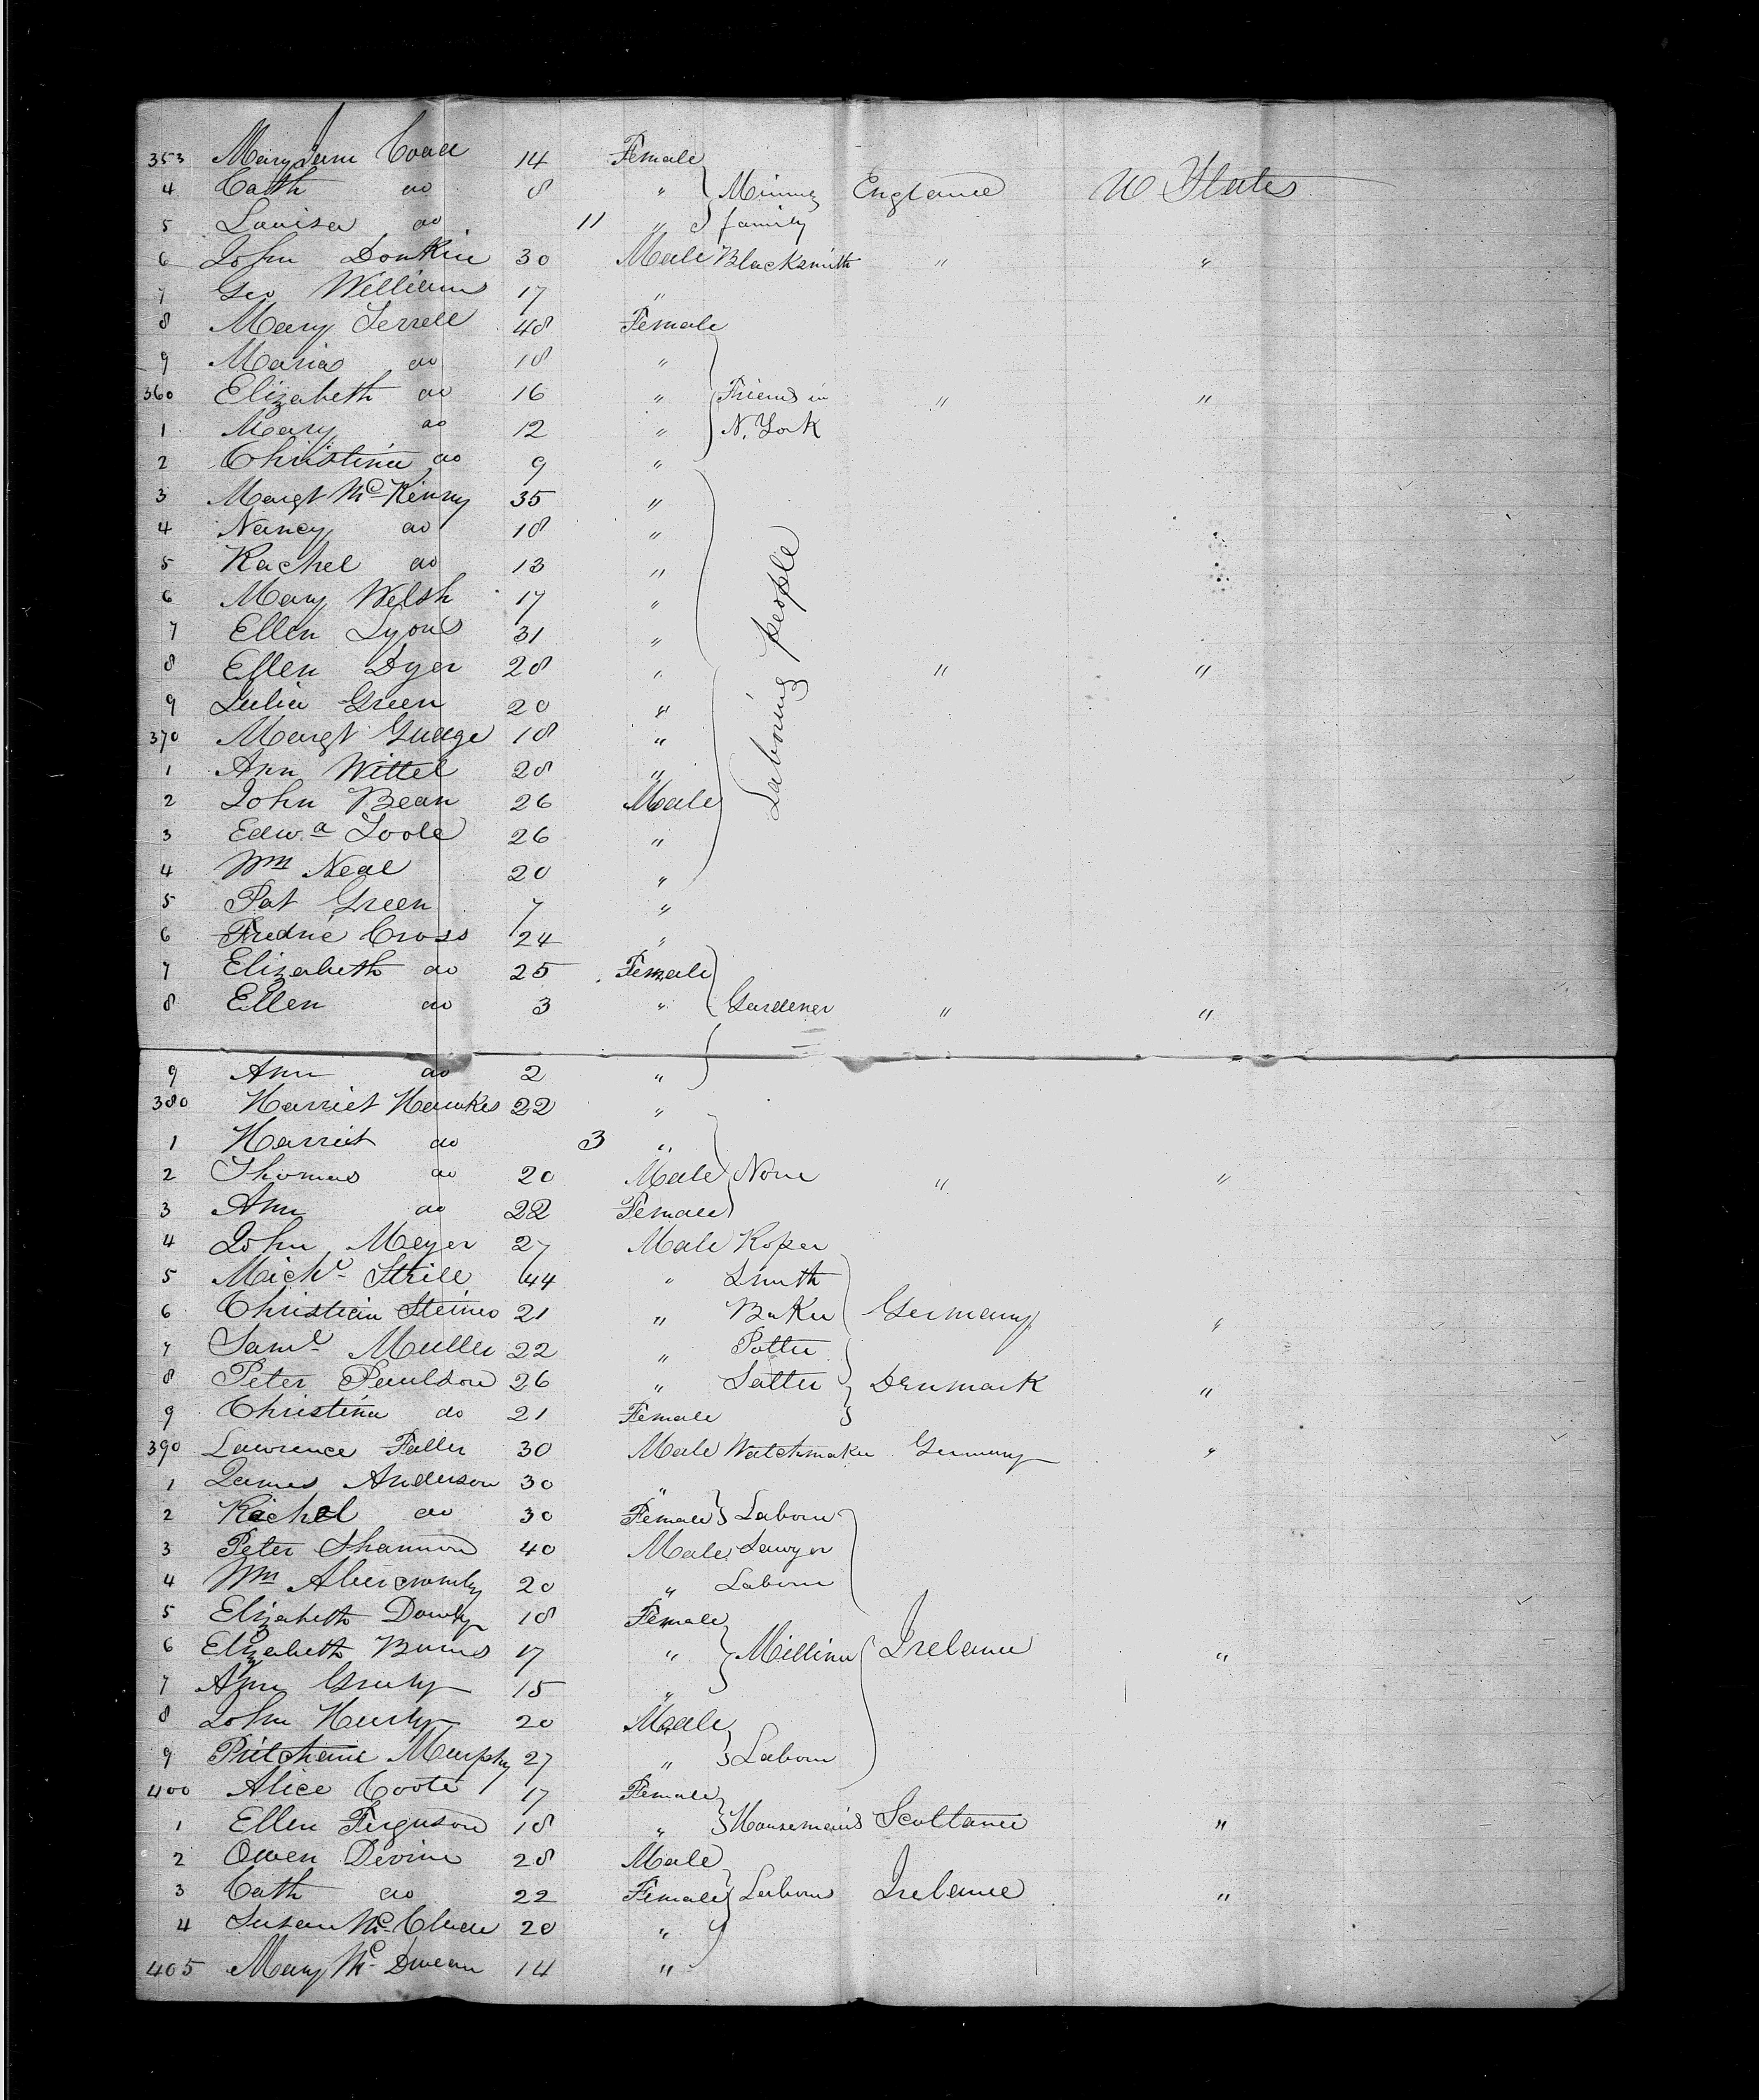 353 Mary Jane Coad 14 Female
4 Cath do 8 " Mining England U States
5 Louisa do 11 " family
6 John Donkin 30 Male Blacksmith " "
7 Geo Williams 17 "
8 Mary Terrell 48 Female
9 Maria do 18 "
360 Elizabeth do 16 " Friends in " "
1 Mary do 12 " N. York
2 Christina do 9 "
3 Margt McKinny 35 "
4 Nancy do 18 "
5 Rachel do 13 "
6 Mary Welsh 17 "
7 Ellen Lyons 31 "
8 Ellen Dyer 28 " Laboring people " "
9 Julia Green 20 "
370 Margt Gudge 18 "
1 Ann Wittel 28 "
2 John Bean 26 Male
3 Edwd Toole 26 "
4 Wm Neal 20 "
5 Pat Green 7 "
6 Fredric Cross 24 "
7 Elizabeth do 25 Female
8 Ellen do 3 " Gardener " "
9 Ann do 2 "
380 Harriet Hawkes 22 "
1 Harriet do 3 "
2 Thomas do 20 Male None " "
3 Ann do 22 Female
4 John Meyer 27 Male Roper
5 Michl Strill 44 " Smith
6 Christian Steines 21 " Baker Germany "
7 Saml Muller 22 " Potter
8 Peter Paulson 26 " Satler Denmark "
9 Christina do 21 Female
390 Lawrence Faller 30 Male Watchmaker Germany "
1 James Anderson 30 "
2 Rachel do 30 Female Laborer
3 Peter Shannon 40 Male Sawyer
4 Wm Abercromby 20 " Laborer
5 Elizabeth Dowly 18 Female
6 Elizabeth Burns 17 " Milliner Ireland "
7 Ann 15 "
8 John Hurly 20 Male
9 Murphy 27 " Laborer
400 Alice Coote 17 Female
1 Ellen Ferguson 18 " Housemaids Scotland "
2 Owen Devine 28 Male
3 Cath do 22 Female Laborers Ireland "
4 Susan 20 "
405 Mary 14 "